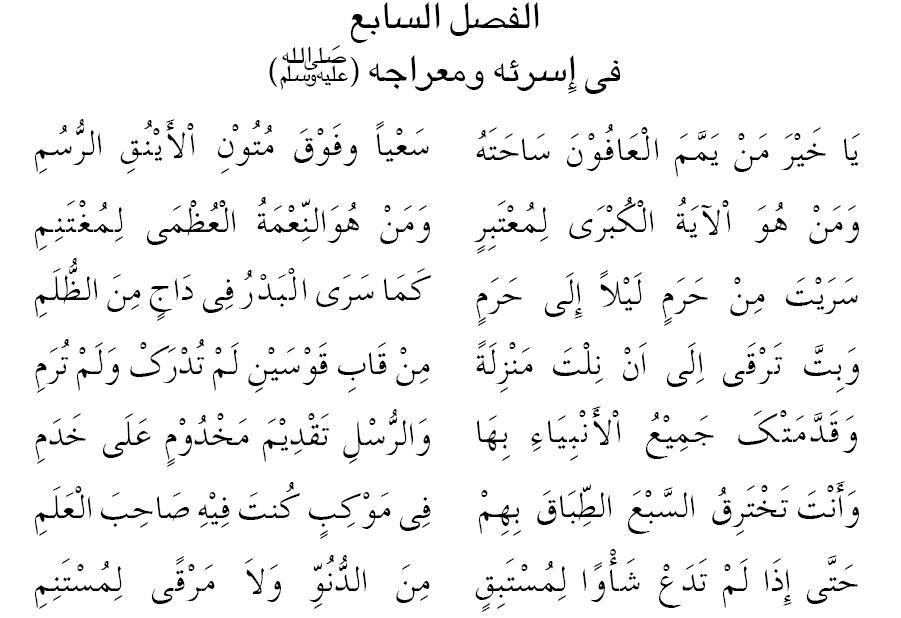 الفصل السابع
فى إسرئه ومعراجه (ﷺ)
يَا خَيْرَ مَنْ يَمَّمَ الْعَافُوْنَ سَاحَتَهُ سَعْياً وفَوْقَ مُتُوْنِ اْلأَيْنُقِ الرُّسُمِ
وَمَنْ هُوَ اْلآيَةُ الْكُبْرَى لِمُعْتَبِرٍ وَمَنْ هُوَالنِّعْمَةُ الْعُظْمَى لِمُغْتَنِمِ
سَرَيْتَ مِنْ حَرَمٍ لَيْلاً إِلَى حَرَمٍ كَمَا سَرَى الْبَدْرُ فِى دَاجٍ مِنَ الظُّلَمِ
وَبِتَّ تَرْقَى اِلَى اَنْ نِلْتَ مَنْزِلَةً مِنْ قَابِ قَوْسَيْنِ لَمْ تُدْرَکْ وَلَمْ تُرَمِ
وَقَدَّمَتْکَ جَمِيْعُ اْلأَنْبِيَاءِ بِهَا وَالرُّسْلِ تَقْدِيْمَ مَخْدُوْمٍ عَلَى خَدَمِ
وَأَنْتَ تَخْتَرِقُ السَّبْعَ الطِّبَاقَ بِهِمْ فِى مَوْكِبٍ كُنتَ فِيْهِ صَاحِبَ الْعَلَمِ
حَتَّى إِذَا لَمْ تَدَعْ شَأْوًا لِمُسْتَبِقٍ مِنَ الدُّنُوِّ وَلاَ مَرْقًى لِمُسْتَنِمِ